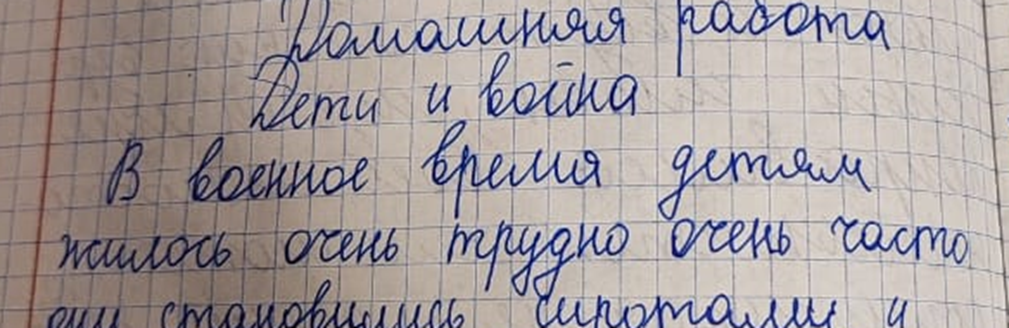 Домашняя работа
Дети и война
В военное время детям
жилось очень трудно очень часто
они становились сиротами и